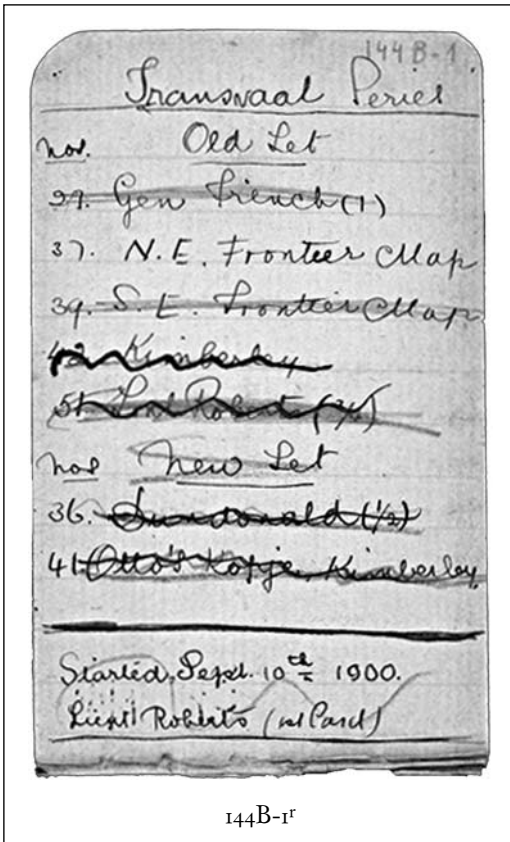 144B-1
Transvaal Series
Old Set
nos.
29. Gen French (1)
37. N.E. Frontier Map
39. S.E. Frontier Map
42 Kimberley
51 Lord Roberts (3/5)
nos New Set
36. Dundonald (1/2)
41 Otto's Kopje Kimberley.
Started, Sept. 10th 1900.
Lieut Roberts (1st Card)
144B-1r